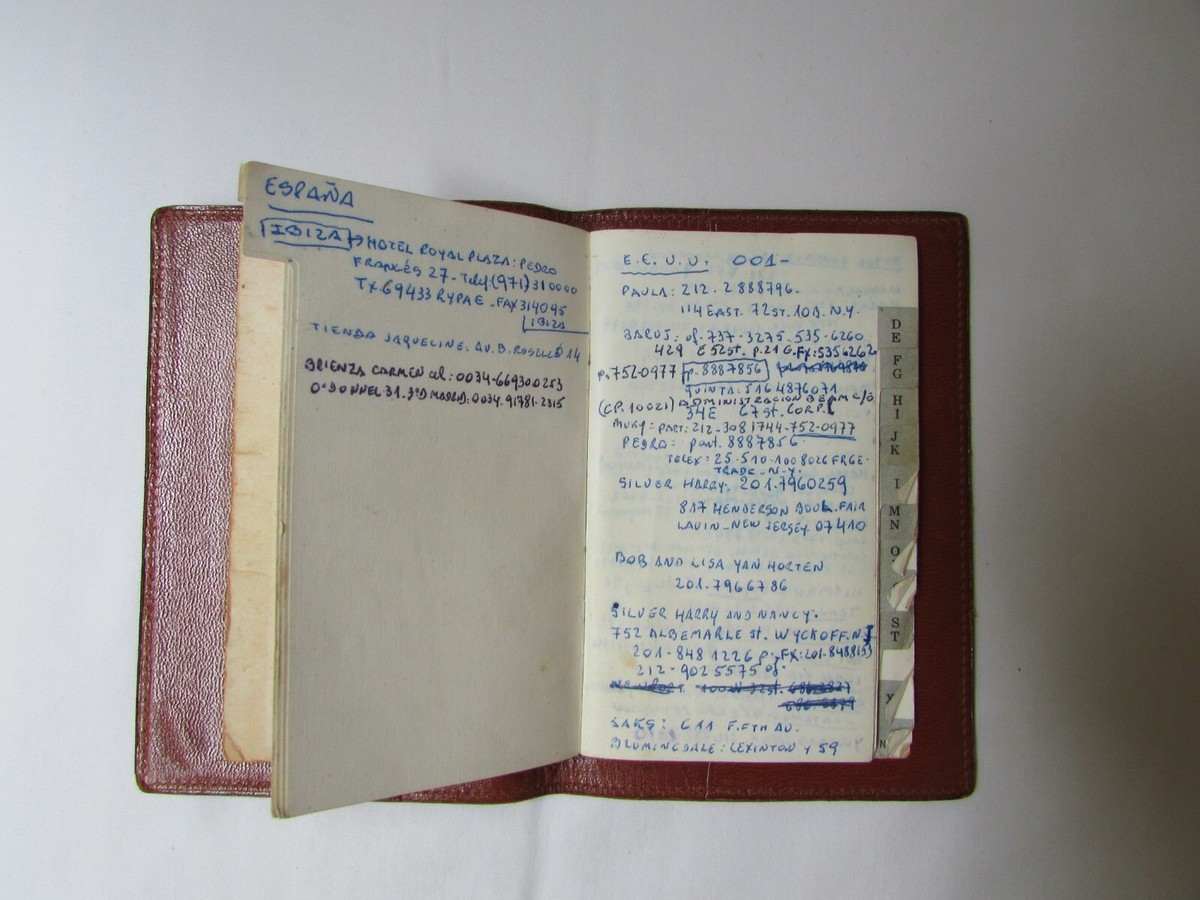 ESPAÑA
IBIZA → HOTEL ROYAL PLAZA: PEDRO
FRANCÉS 27 - Telf (971) 310000
TX 69433 RYPAE - FAX 314095
IBIZA
TIENDA JAQUELINE: AV. B. ROSELLÓ 14
BRIENZA CARMEN cel: 0034-669300253
O'DONNEL 31. 3ºD MADRID: 0034.91781-2315
E.E.U.U. 001-
PAULA: 212-2888796-
114 EAST. 72 ST. 10B. N.Y.
BARUJ: of-737-3275-535-6260
429 E 52 st. p.21 G. FX: 5356262
p. 752-0977 p.8887856
QUINTA: 5164876071
(CP. 10021) ADMINISTRACION BEAM C/O
34E 67 st. CORP.
MURY: PART: 212-3081744-752-0977
PEDRO: part. 8887856
TELEX: 25-510-1008026 FRGE-
TRADE-N.Y.
SILVER HARRY. 201.7960259
817 HENDERSON BOUL. FAIR
LAVIN-NEW JERSEY. 07410
BOB AND LISA VAN HORTEN
201.7966786
SILVER HARRY AND NANCY.
752 ALBEMARLE st. WYCKOFF. NJ
201-848 1226 p. FX: 201-8488153
212-9025575 of.
NEWPORT
SAKS: 611 FIFTH AV.
BLUMINGDALE: LEXINTON Y 59
DE
FG
HI
JK
MN
O
ST
Y
N